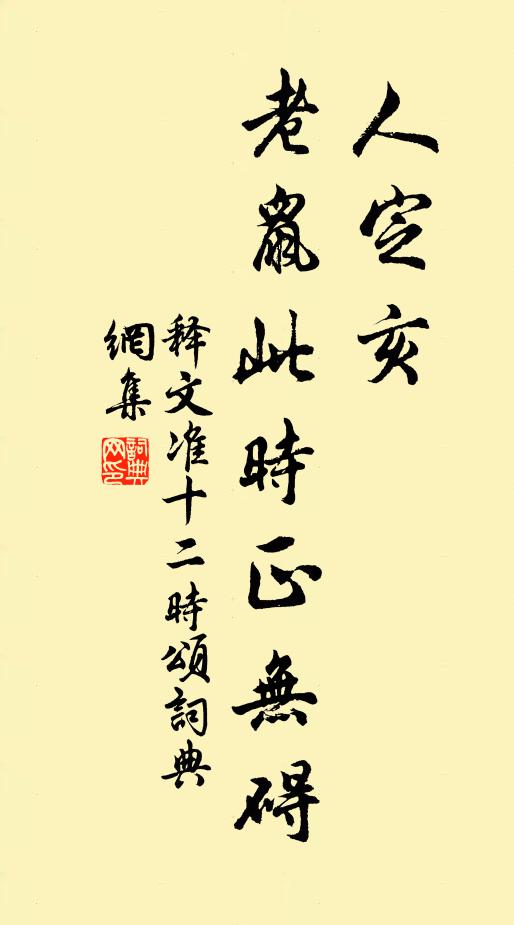 人定亥
老鼠此時正無碍
释文准十二時頌詞典
網集
詞典網印